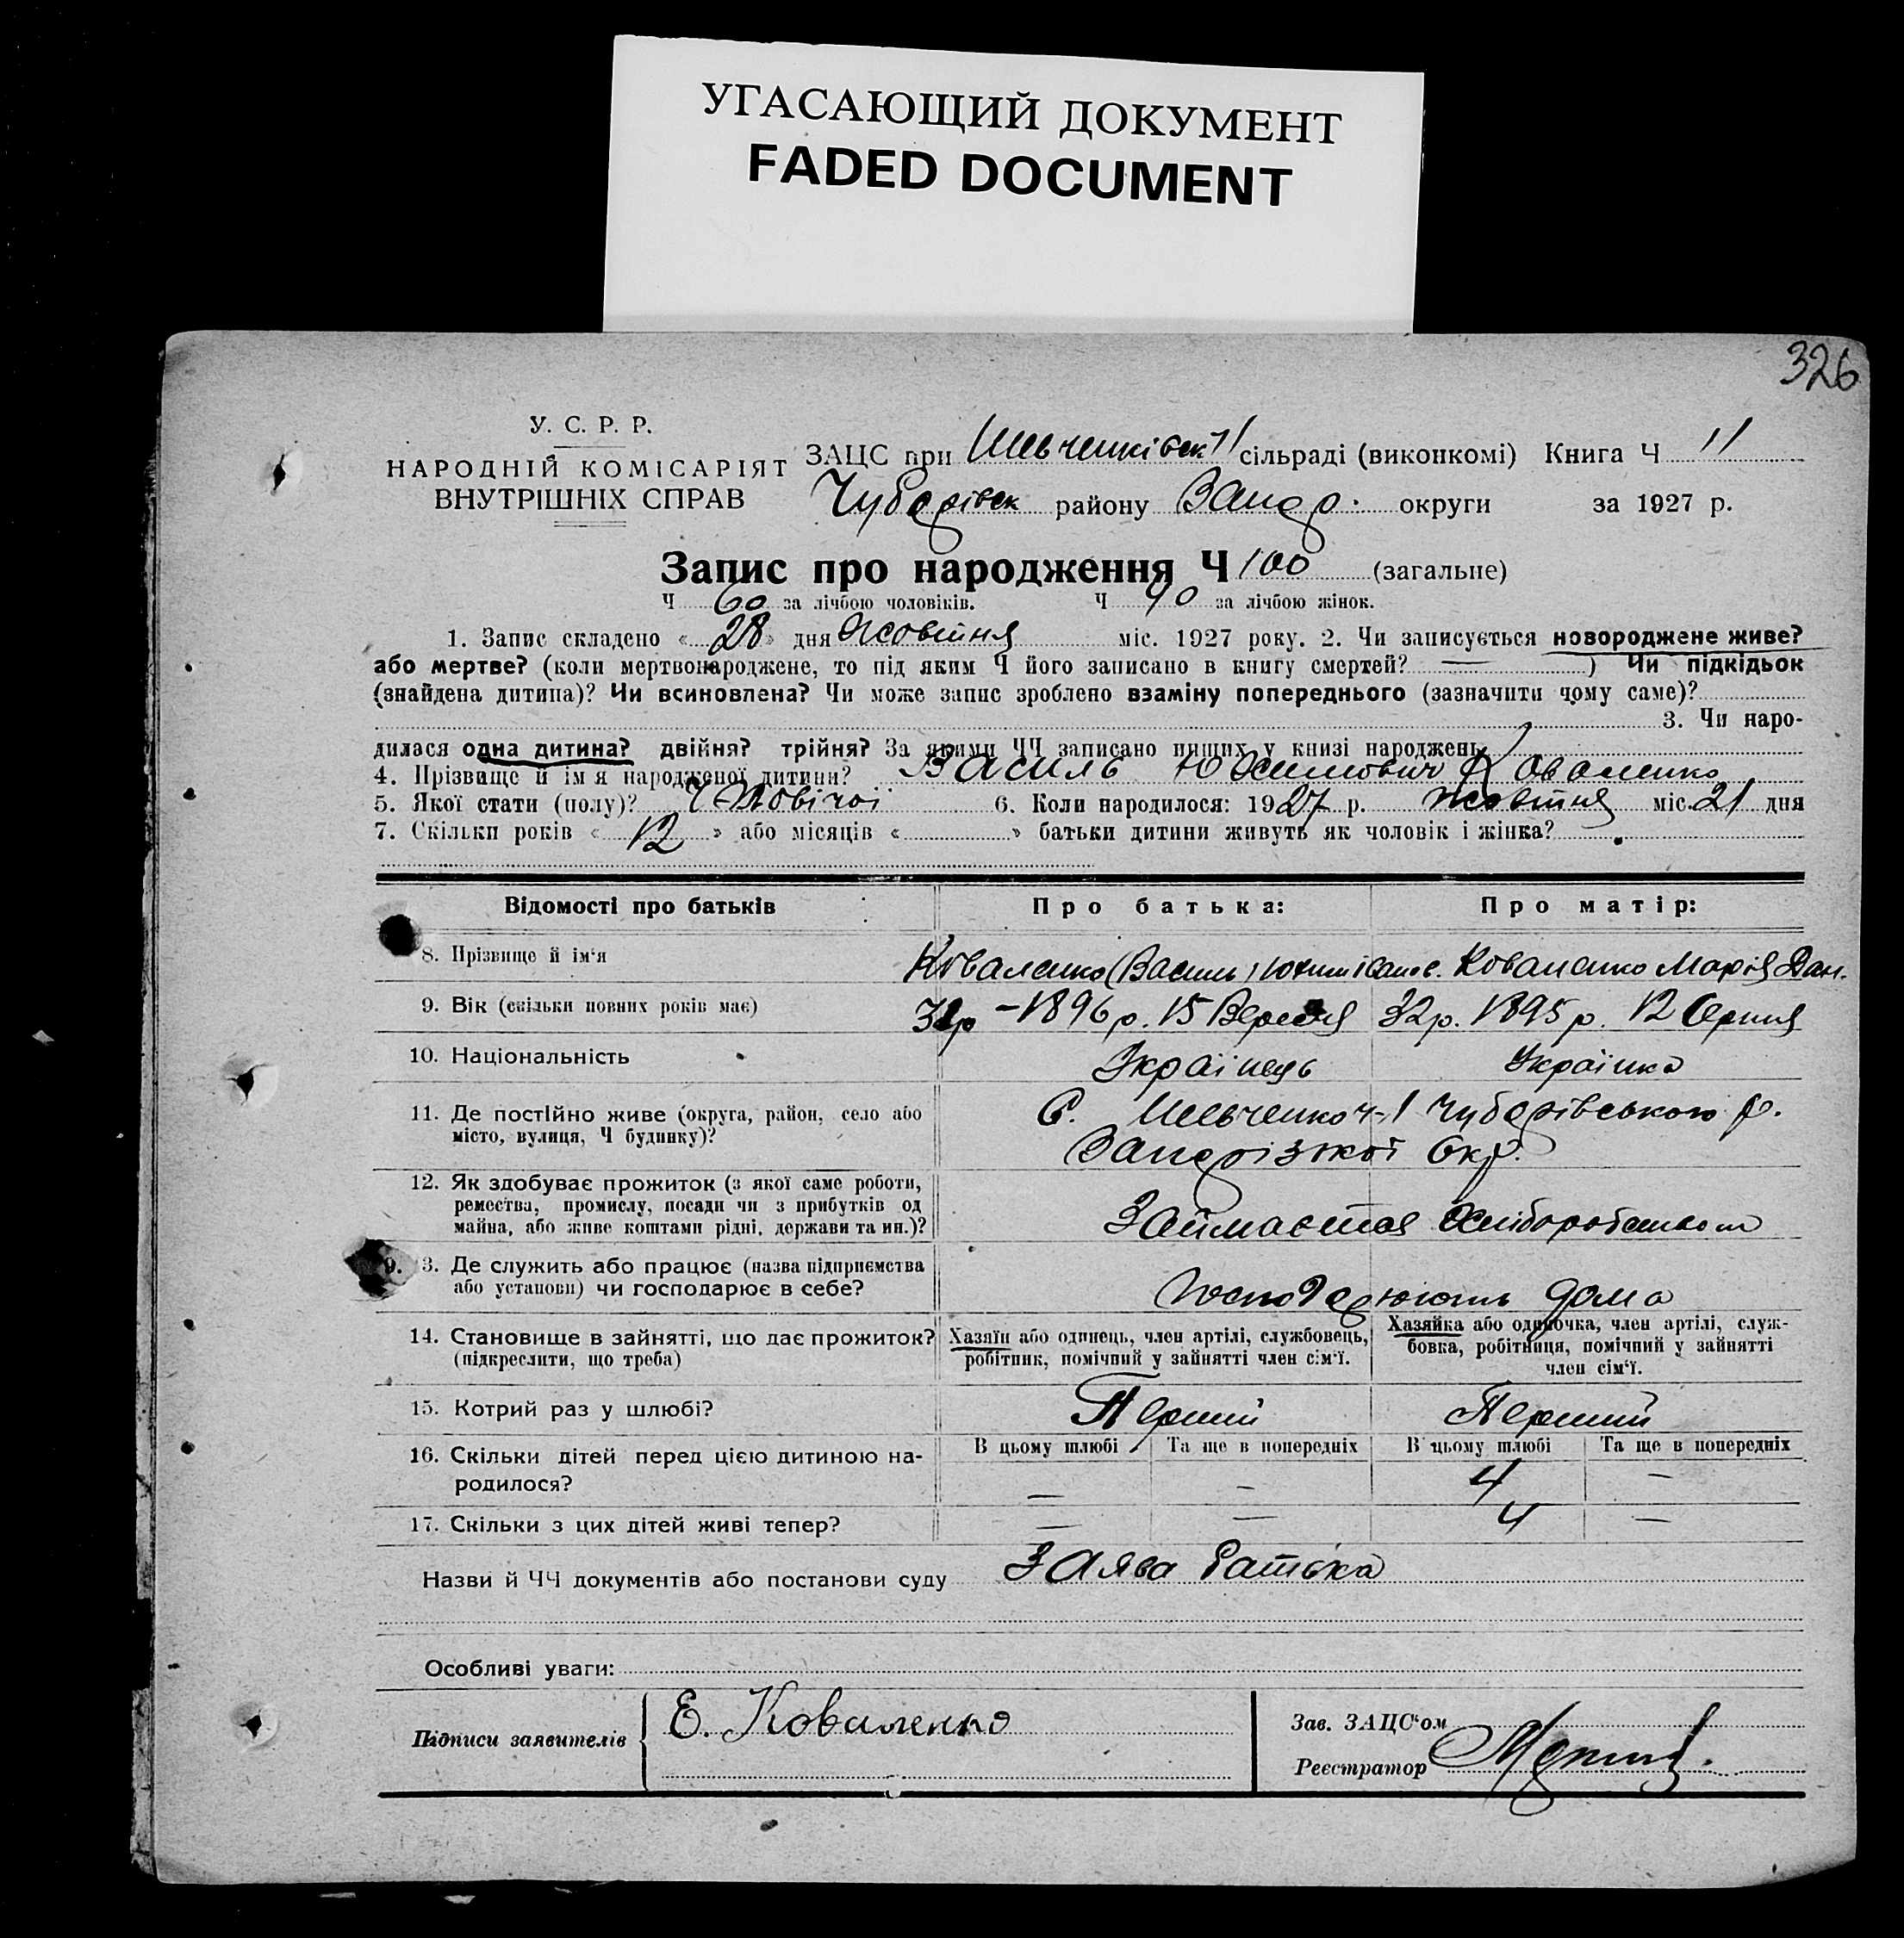 УГАСАЮЩИЙ ДОКУМЕНТ
FADED DOCUMENT
326
У. С. Р. Р.
НАРОДНІЙ КОМІСАРІЯТ
ВНУТРІШНІХ СПРАВ
ЗАЦС при Шевченківськ сільраді (виконкомі) Книга Ч 11
Чубарівськ району Запор. округи за 1927 р.
Запис про народження Ч 100 (загальне)
Ч 60 за лічбою чоловіків. Ч 40 за лічбою жінок.
1. Запис складено « 28 » дня Жовтня міс. 1927 року. 2. Чи записується новороджене живе?
або мертве? (коли мертвонароджене, то під яким Ч його записано в книгу смертей? — ) Чи підкідьок
(знайдена дитина)? Чи всиновлена? Чи може запис зроблено взаміну попереднього (зазначити чому саме)?
3. Чи наро-
дилася одна дитина? двійня? трійня? За якими ЧЧ записано инших у книзі народжень
4. Прізвище й ім я народженої дитини? Василь Юхимович Коваленко
5. Якої стати (полу)? Чоловічої 6. Коли народилося: 1927 р. Жовтня міс. 21 дня
7. Скільки років « 12 » або місяців « » батьки дитини живуть як чоловік і жінка?
Відомості про батьків Про батька: Про матір:
8. Прізвище й ім‘я Коваленко (Василь) Юхим Коваленко Марія Дан.
9. Вік (скільки повних років має) 31р – 1896 р. 15 Вересня 32р. 1895 р. 12 Серпня
10. Національність Українець Українка
11. Де постійно живе (округа, район, село або
місто, вулиця, Ч будинку)?
С. Шевченко ч-1 Чубарівського р.
Запорізької Окр.
12. Як здобуває прожиток (з якої саме роботи,
ремества, промислу, посади чи з прибутків од
майна, або живе коштами рідні, держави та ин.)?
Займається Хліборобством
3. Де служить або працює (назва підприємства
або установи) чи господарює в себе?
Господарюють дома
14. Становище в зайнятті, що дає прожиток?
(підкреслити, що треба)
Хазяїн або одинець, член артілі, службовець,
робітник, помічний у зайнятті член сім‘ї.
Хазяйка або одиночка, член артілі, служ-
бовка, робітниця, помічний у зайнятті
член сім‘ї.
15. Котрий раз у шлюбі? Перший Перший
16. Скільки дітей перед цією дитиною на-
родилося?
В цьому шлюбі Та ще в попередніх В цьому шлюбі Та ще в попередніх
— — 4 —
17. Скільки з цих дітей живі тепер? — — 4 —
Назви й ЧЧ документів або постанови суду Заява батька
Особливі уваги:
Підписи заявителів Е. Коваленко
Зав. ЗАЦС‘ом
Реєстратор